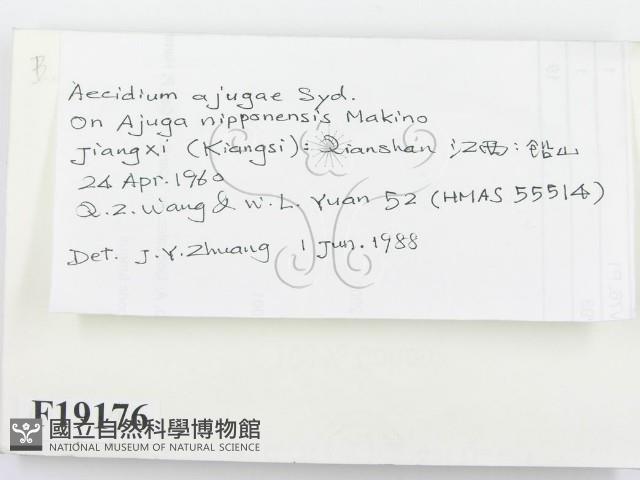 Aecidium ajugae Syd.
On Ajuga nipponensis Makino
Jiangxi (Kiangsi): Qianshan 江西:鉛山
24 Apr. 1960
Q.Z. Wang & W.L. Yuan 52 (HMAS 55514)
Det. J.Y. Zhuang 1 Jun. 1988
F19176
國立自然科學博物館
NATIONAL MUSEUM OF NATURAL SCIENCE